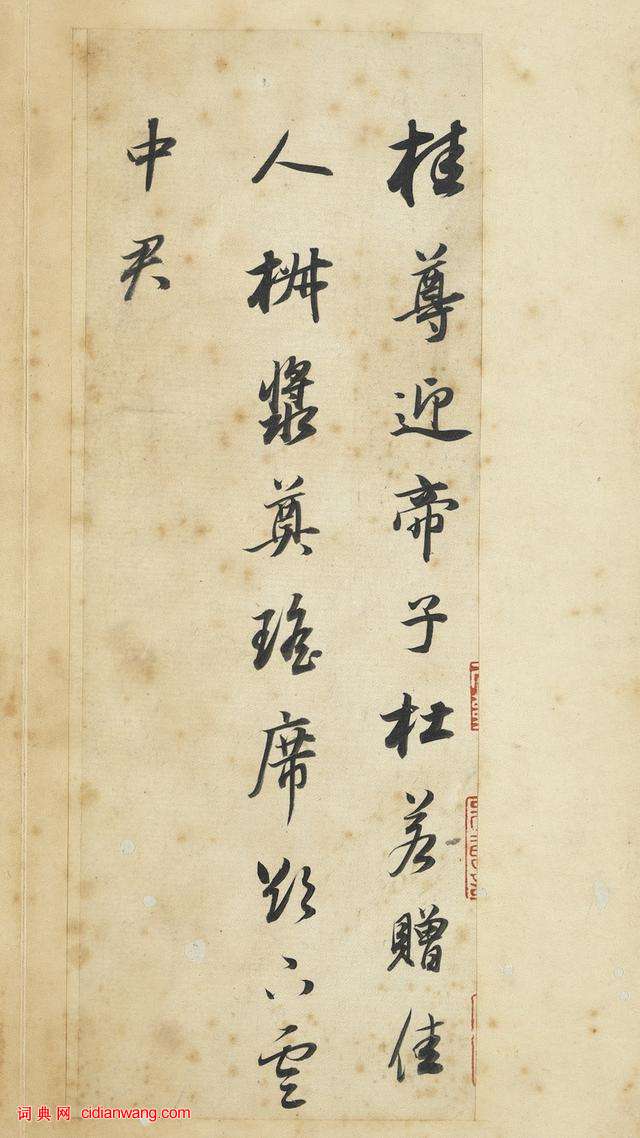 桂尊迎帝子杜若贈佳
人椒漿奠瑤席欲下雲
中君
词典网 cidianwang.com